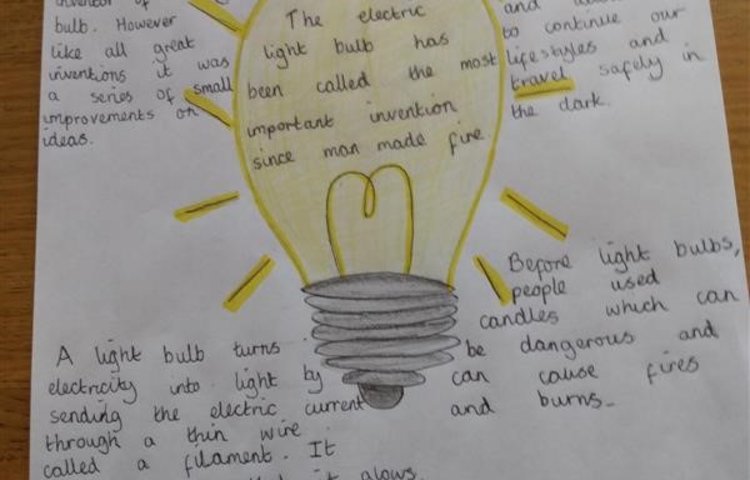 inventor of
bulb. However
like all great
inventions it was
a series of small
improvements on
ideas.
The electric
light bulb has
been called the most
important invention
since man made fire
and
to continue our
lifestyles and
travel safely in
the dark.
Before light bulbs,
people used
candles which can
be dangerous and
can cause fires
and burns.
A light bulb turns
electricity into light by
sending the electric current
through a thin wire
called a filament. It
it glows